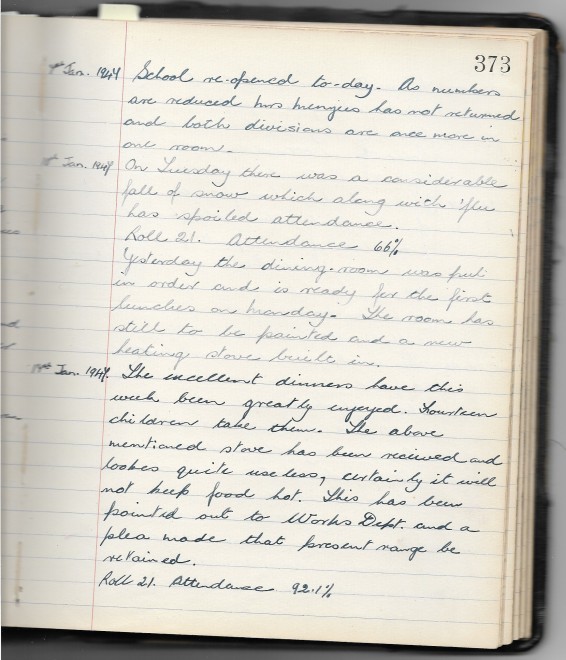 373
Jan. 1947 School re-opened to-day. As numbers
are reduced Mrs Menzies has not returned
and both divisions are once more in
one room.
Jan. 1947 On Tuesday there was a considerable
fall of snow which along with 'flu
has spoiled attendance.
Roll 21. Attendance 66%
Yesterday the dining-room was put
in order and is ready for the first
lunches on Monday. The room has
still to be painted and a new
heating stove built in.
Jan. 1947. The excellent dinners have this
week been greatly enjoyed. Fourteen
children take them. The above
mentioned stove has been received and
lookes quite useless, certainly it will
not keep food hot. This has been
pointed out to Works Dept. and a
plea made that present range be
retained.
Roll 21. Attendance 92.1%